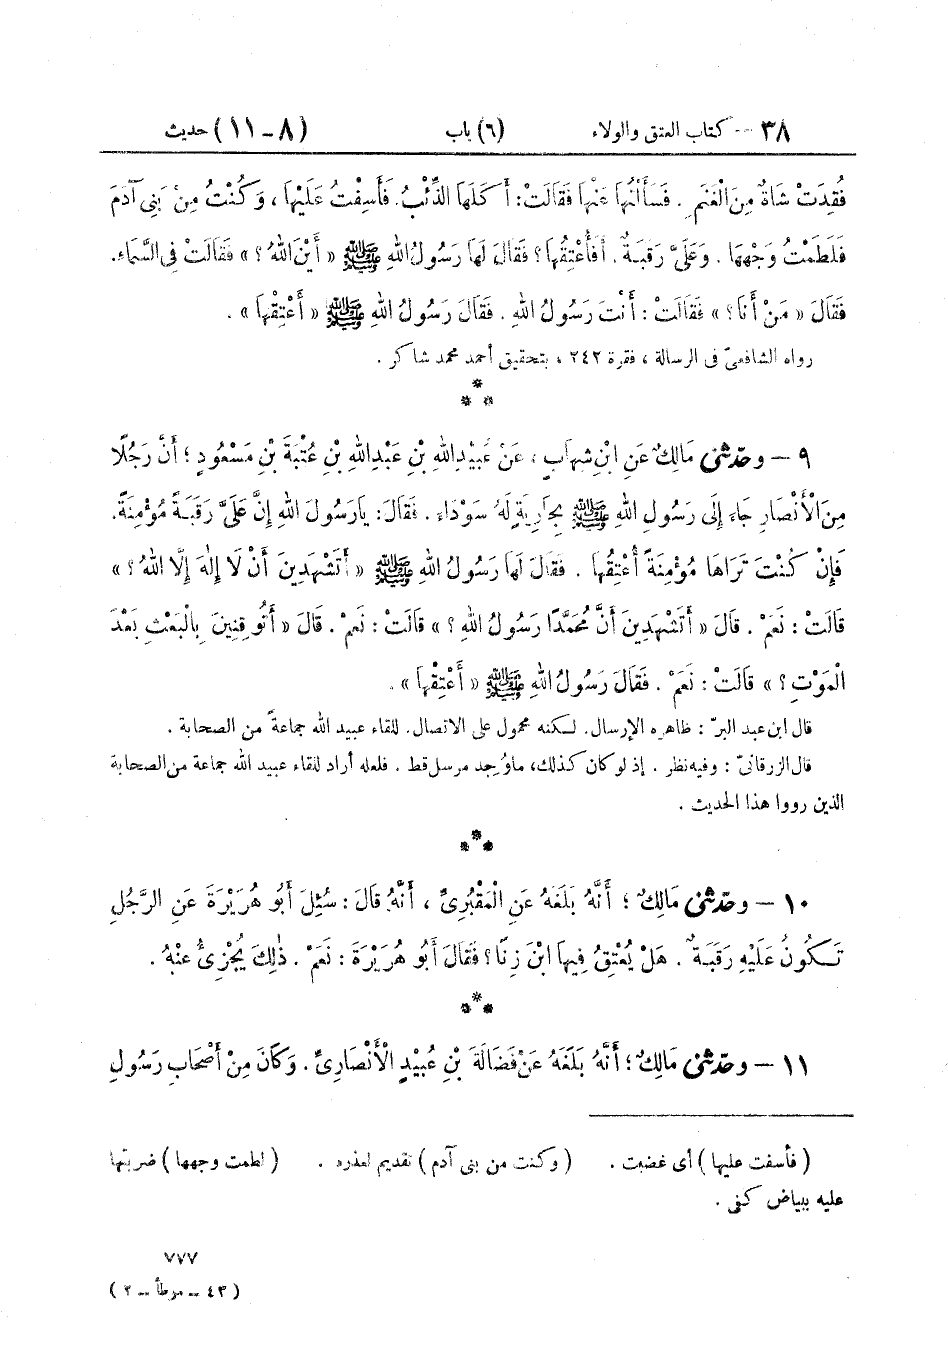 ٣٨ – كتاب العتق والولاء (٦) باب (٨ – ١١) حديث
فُقِدَتْ شَاةٌ مِنَ الْغَنَمِ. فَسَأَلْتُهَا عَنْهَا فَقَالَتْ: أَكَلَهَا الذِّئْبُ. فَأَسِفْتُ عَلَيْهَا، وَكُنْتُ مِنْ بَنِى آدَمَ
فَلَطَمْتُ وَجْهَهَا. وَعَلَىَّ رَقَبَةٌ. أَفَأُعْتِقُهَا؟ فَقَالَ لَهَا رَسُولُ اللهِ ﷺ « أَيْنَ اللهُ؟ » فَقَالَتْ فِى السَّمَاءِ.
فَقَالَ « مَنْ أَنَا؟ » فَقَالَتْ: أَنْتَ رَسُولُ اللهِ. فَقَالَ رَسُولُ اللهِ ﷺ « أَعْتِقْهَا ».
رواه الشافعىّ فى الرسالة، فقرة ٢٤٢، بتحقيق أحمد محمد شاكر.
***
٩ – وحدّثنى مَالِكٌ عَنِ ابْنِ شِهَابٍ، عَنْ عُبَيْدِ اللهِ بْنِ عَبْدِ اللهِ بْنِ عُتْبَةَ بْنِ مَسْعُودٍ؛ أَنَّ رَجُلًا
مِنَ الْأَنْصَارِ جَاءَ إِلَى رَسُولِ اللهِ ﷺ بِجَارِيَةٍ لَهُ سَوْدَاءَ. فَقَالَ: يَارَسُولَ اللهِ إِنَّ عَلَىَّ رَقَبَةً مُؤْمِنَةً.
فَإِنْ كُنْتَ تَرَاهَا مُؤْمِنَةً أُعْتِقُهَا. فَقَالَ لَهَا رَسُولُ اللهِ ﷺ « أَتَشْهَدِينَ أَنْ لَا إِلٰهَ إِلَّا اللهُ؟ »
قَالَتْ: نَعَمْ. قَالَ « أَتَشْهَدِينَ أَنَّ مُحَمَّدًا رَسُولُ اللهِ؟ » قَالَتْ: نَعَمْ. قَالَ « أَتُوقِنِينَ بِالْبَعْثِ بَعْدَ
الْمَوْتِ؟ » قَالَتْ: نَعَمْ. فَقَالَ رَسُولُ اللهِ ﷺ « أَعْتِقْهَا ».
قال ابن عبد البرّ: ظاهره الإرسال. لكنه محمول على الاتصال. للقاء عبيد الله جماعةً من الصحابة.
قال الزرقانىّ: وفيه نظر. إذ لو كان كذلك، ماوُجد مرسل قط. فلعله أراد للقاء عبيد الله جماعة من الصحابة
الذين رووا هذا الحديث.
***
١٠ – وحدّثنى مَالِكٌ؛ أَنَّهُ بَلَغَهُ عَنِ الْمَقْبُرِىِّ، أَنَّهُ قَالَ: سُئِلَ أَبُو هُرَيْرَةَ عَنِ الرَّجُلِ
تَكُونُ عَلَيْهِ رَقَبَةٌ. هَلْ يُعْتِقُ فِيهَا ابْنَ زِنًا؟ فَقَالَ أَبُو هُرَيْرَةَ: نَعَمْ. ذٰلِكَ يُجْزِئُ عَنْهُ.
***
١١ – وحدّثنى مَالِكٌ؛ أَنَّهُ بَلَغَهُ عَنْ فَضَالَةَ بْنِ عُبَيْدٍ الْأَنْصَارِىِّ. وَكَانَ مِنْ أَصْحَابِ رَسُولِ
( فأسفت عليها ) أى غضبت. ( وكنت من بنى آدم ) تقديم لعذره. ( لطمت وجهها ) ضربتها
عليه ببياض كفى.
٧٧٧
( ٤٣ – موطأ – ٢ )